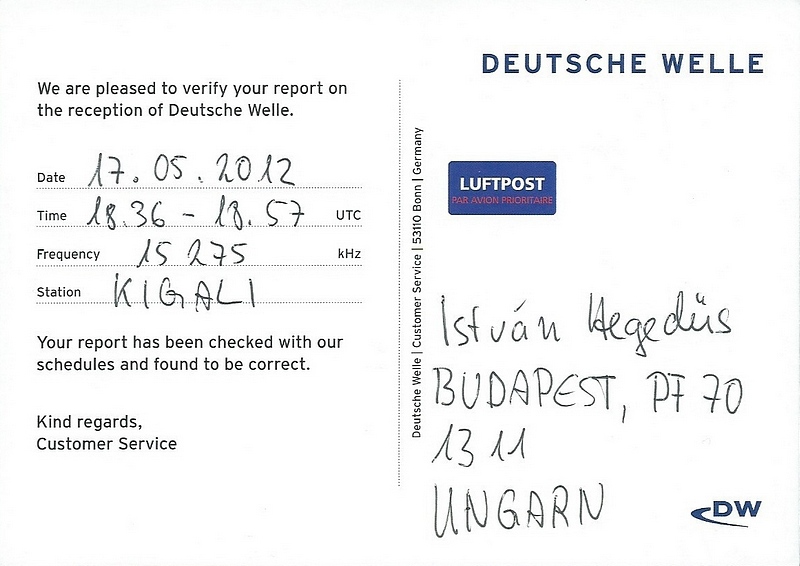 DEUTSCHE WELLE
We are pleased to verify your report on
the reception of Deutsche Welle.
Date 17.05.2012
Time 18.36 - 18.57 UTC
Frequency 15 275 kHz
Station KIGALI
Your report has been checked with our
schedules and found to be correct.
Kind regards,
Customer Service
Deutsche Welle | Customer Service | 53110 Bonn | Germany
LUFTPOST
PAR AVION PRIORITAIRE
István Hegedüs
BUDAPEST, PF 70
1311
UNGARN
DW